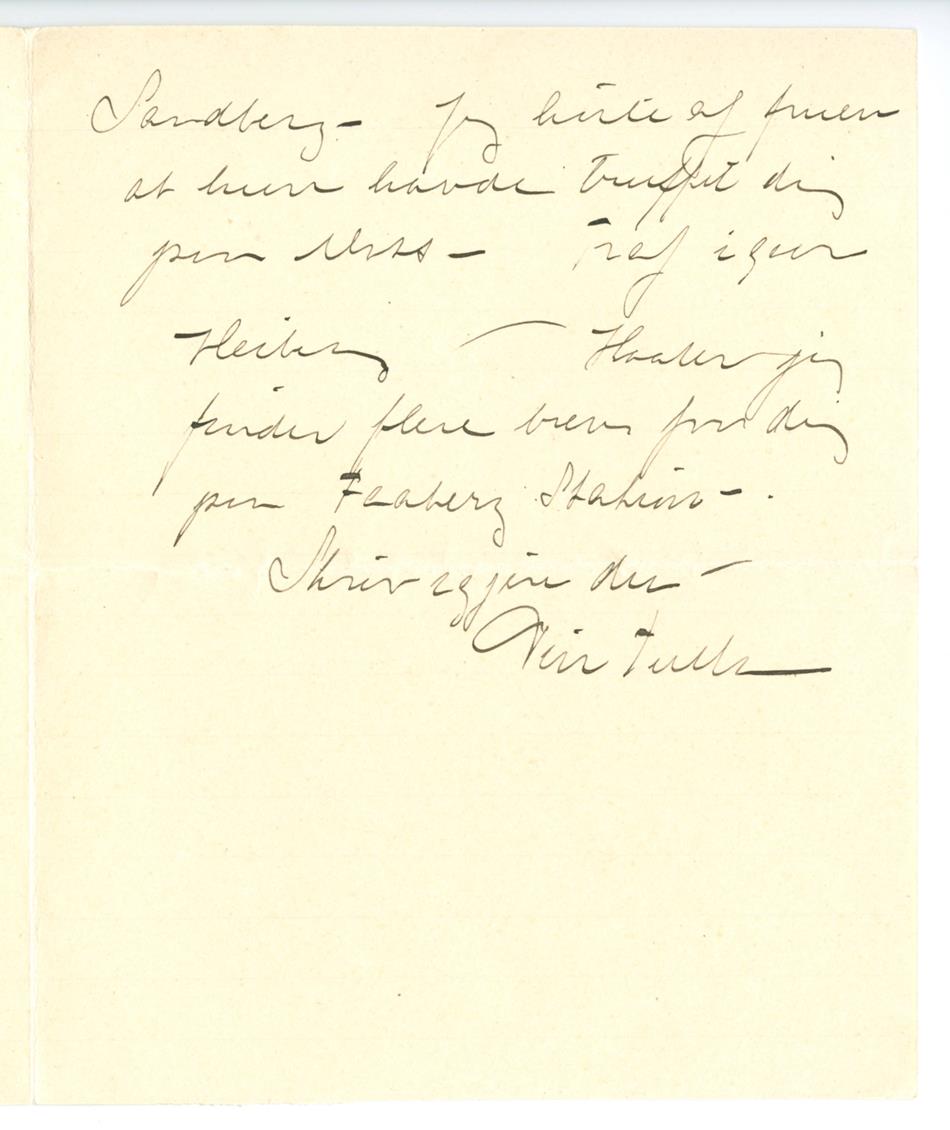 Sandberg – Jeg hørte af fruen
at hun havde truffet dig
paa – Traf igaar
Heiberg – Haaber jeg
finder flere breve fra dig
paa Faaberg Station – .
Skriv igjen der –
Din Tulla